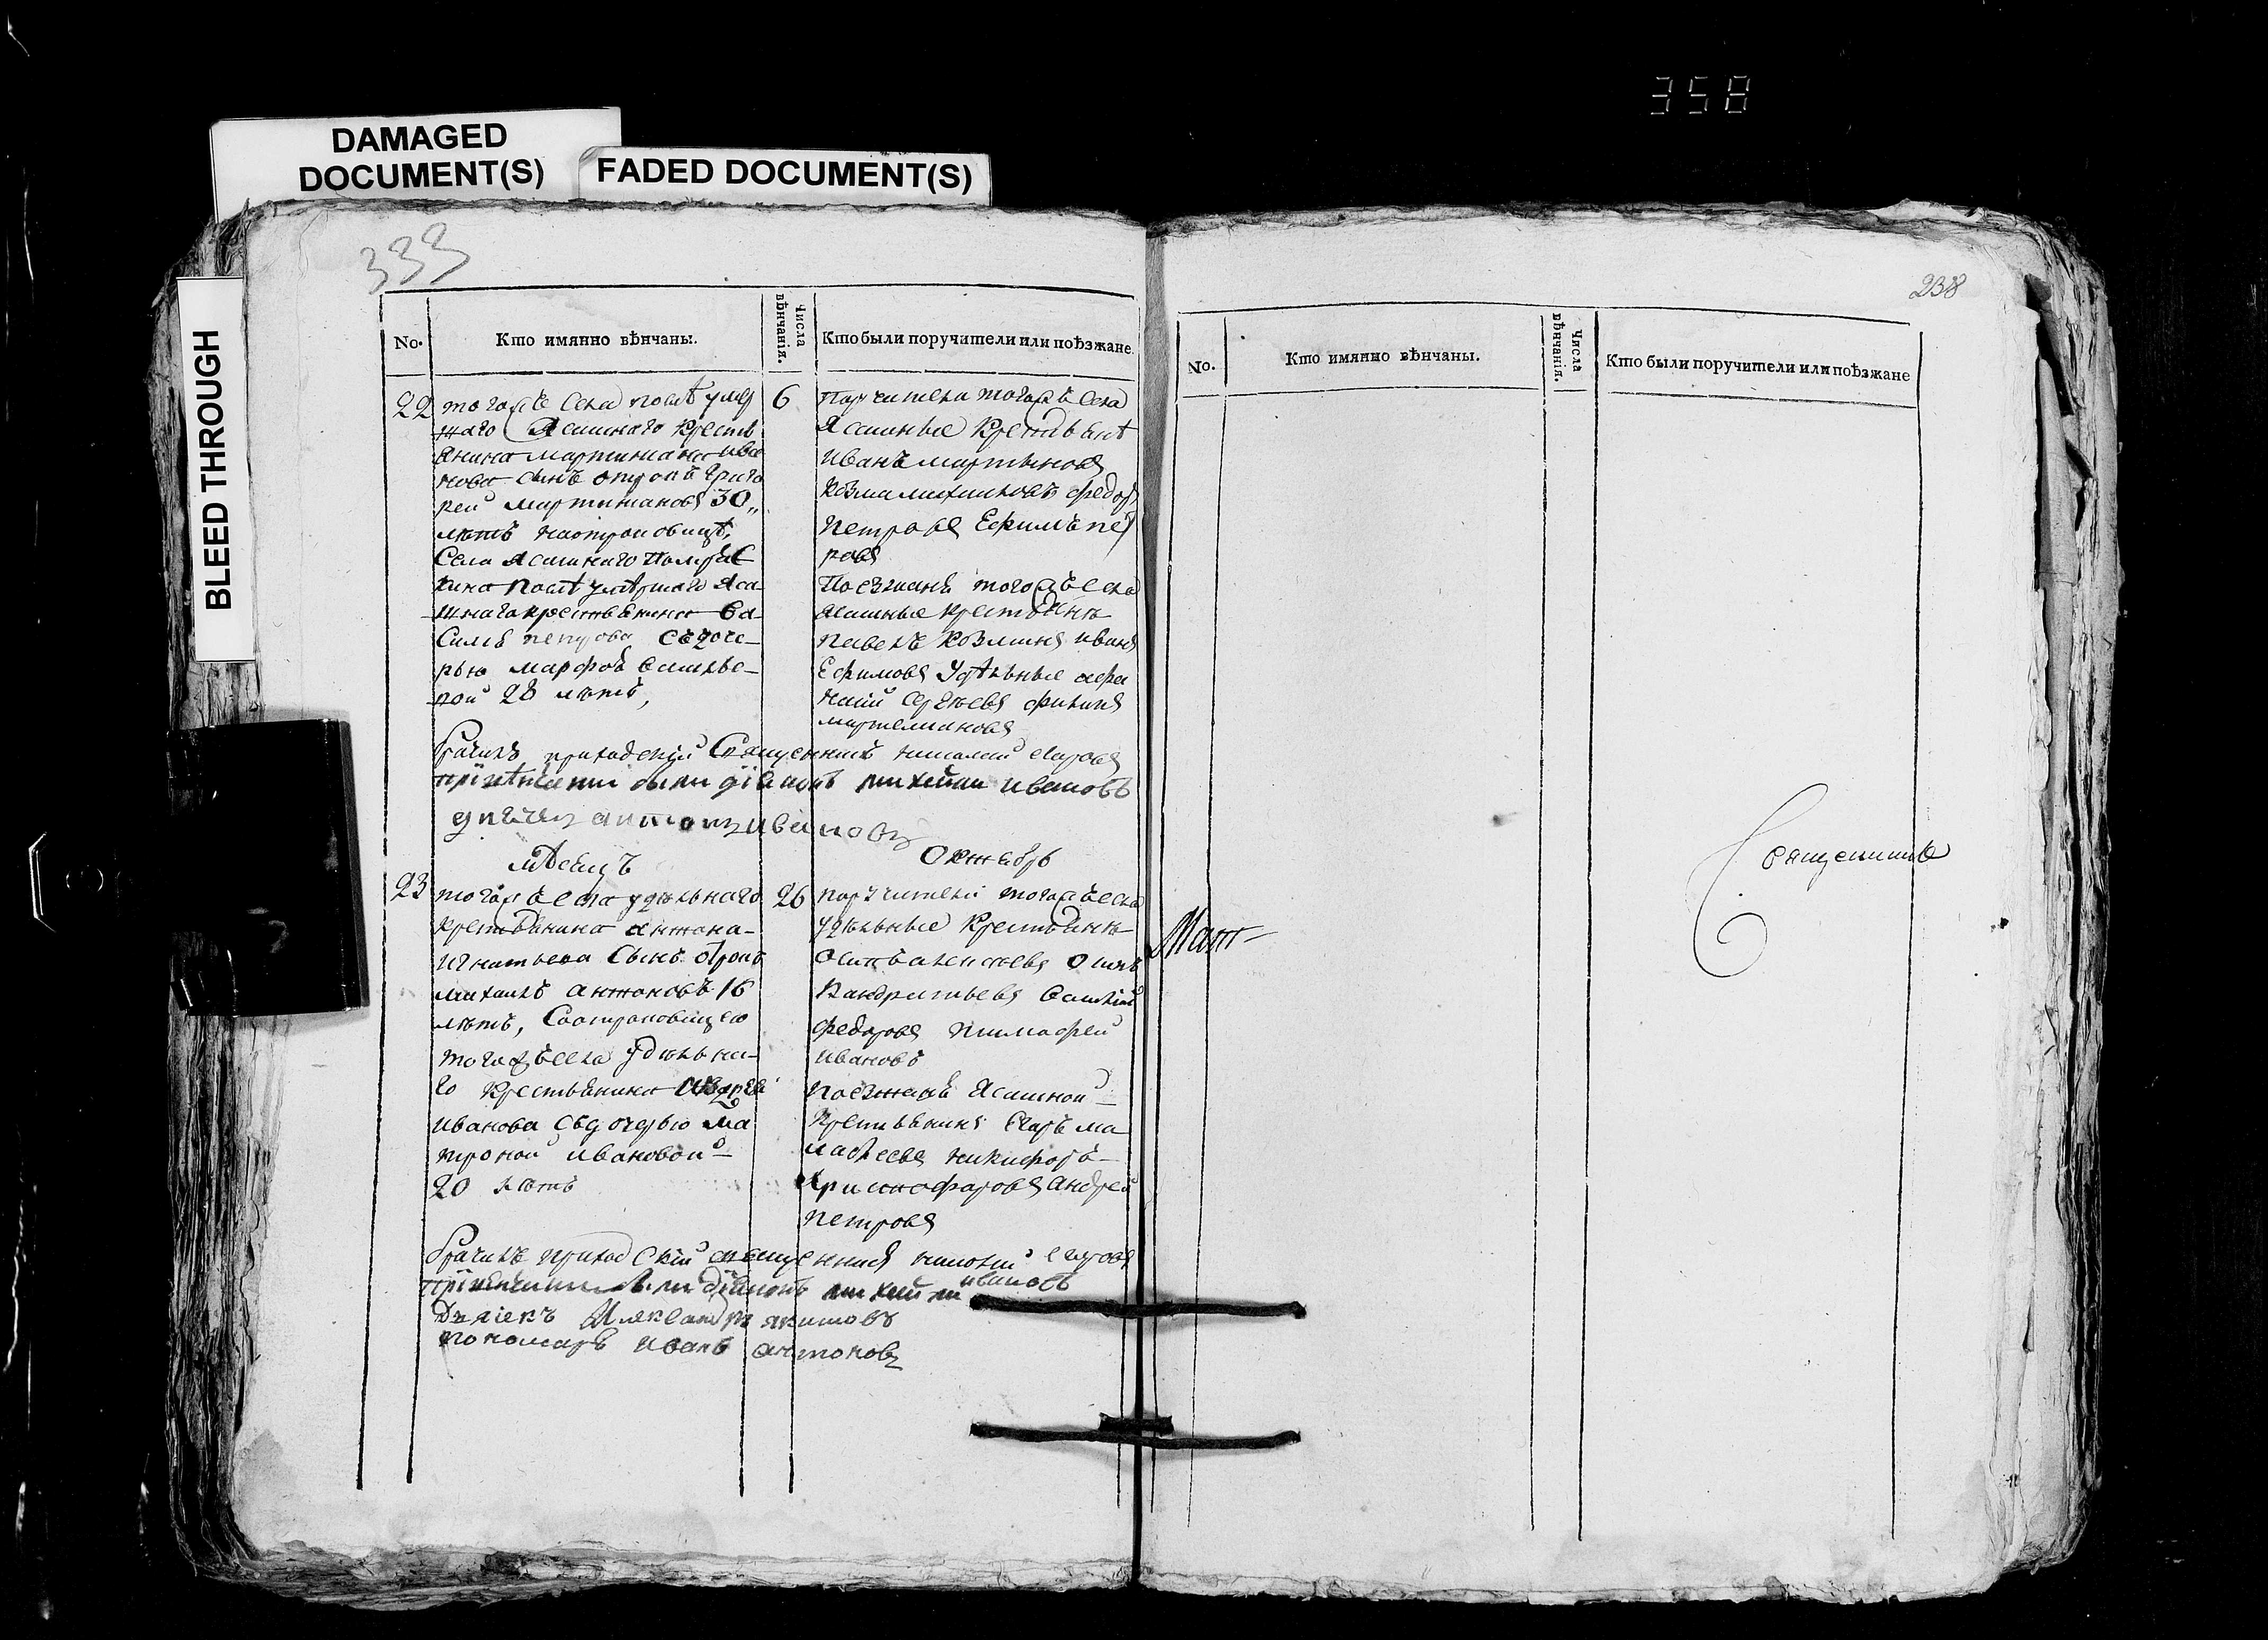 358
DAMAGED
DOCUMENT(S)
FADED DOCUMENT(S)
BLEED THROUGH
333
No.
Кто имянно вѣнчаны.
Числа вѣнчанія.
Кто были поручители или поѣзжане.
22
тогожъ села послѣ умер
шаго Ясашнаго Кресть
янина мартиніана ива
нова сынъ отрокъ григо
рей мартиніановъ 30,,
лѣтъ
села Ясашнаго
кина послѣ умѣршаго Яса
шнаго крестьянина Ва
силья петрова съ доче
рью марфой василье
вой 28 лѣтъ,
6
Поручители тогожъ села
Ясашные Крестьянѣ
иванъ мартыновъ
козма федоръ
петровъ Ефимъ пет
ровъ
Поезжанѣ тогожъ села
ясашные крестьянѣ
павелъ козминъ иванъ
Ефимовъ Удѣльные афа
насий сергѣевъ филипъ
мартемиановъ
Бракъ приходский Священникъ николай егоровъ
при вѣнчании были діаконъ михайла ивановъ
дьячекъ антонъ ивановъ
мѣсецъ Октябрь
23
тогожъ села удѣльнаго
крестьянина антона
игнатьева сынъ отрокъ
михаилъ антоновъ 16
лѣтъ, Соотроковицею
тогожъ села удѣльна
го Крестьянина
иванова съ дочерью ма
троной ивановой
20 лѣтъ
26
поручители тогожъ села
удѣльные Крестьянѣ
осипъ алексѣевъ осипъ
Кандратьевъ василий
федоровъ тимофей
ивановъ
поезжанѣ Ясашной
Крестьянинъ Егоръ ма
твѣевъ никифоръ
христофоровъ андрей
петровъ
Бракъ приходский священникъ николай егоровъ
при вѣнчании были діаконъ михайла ивановъ
Дьячекъ Александръ акимовъ
пономарь иванъ антоновъ
238
No.
Кто имянно вѣнчаны.
Числа вѣнчанія.
Кто были поручители или поѣзжане
Священникъ